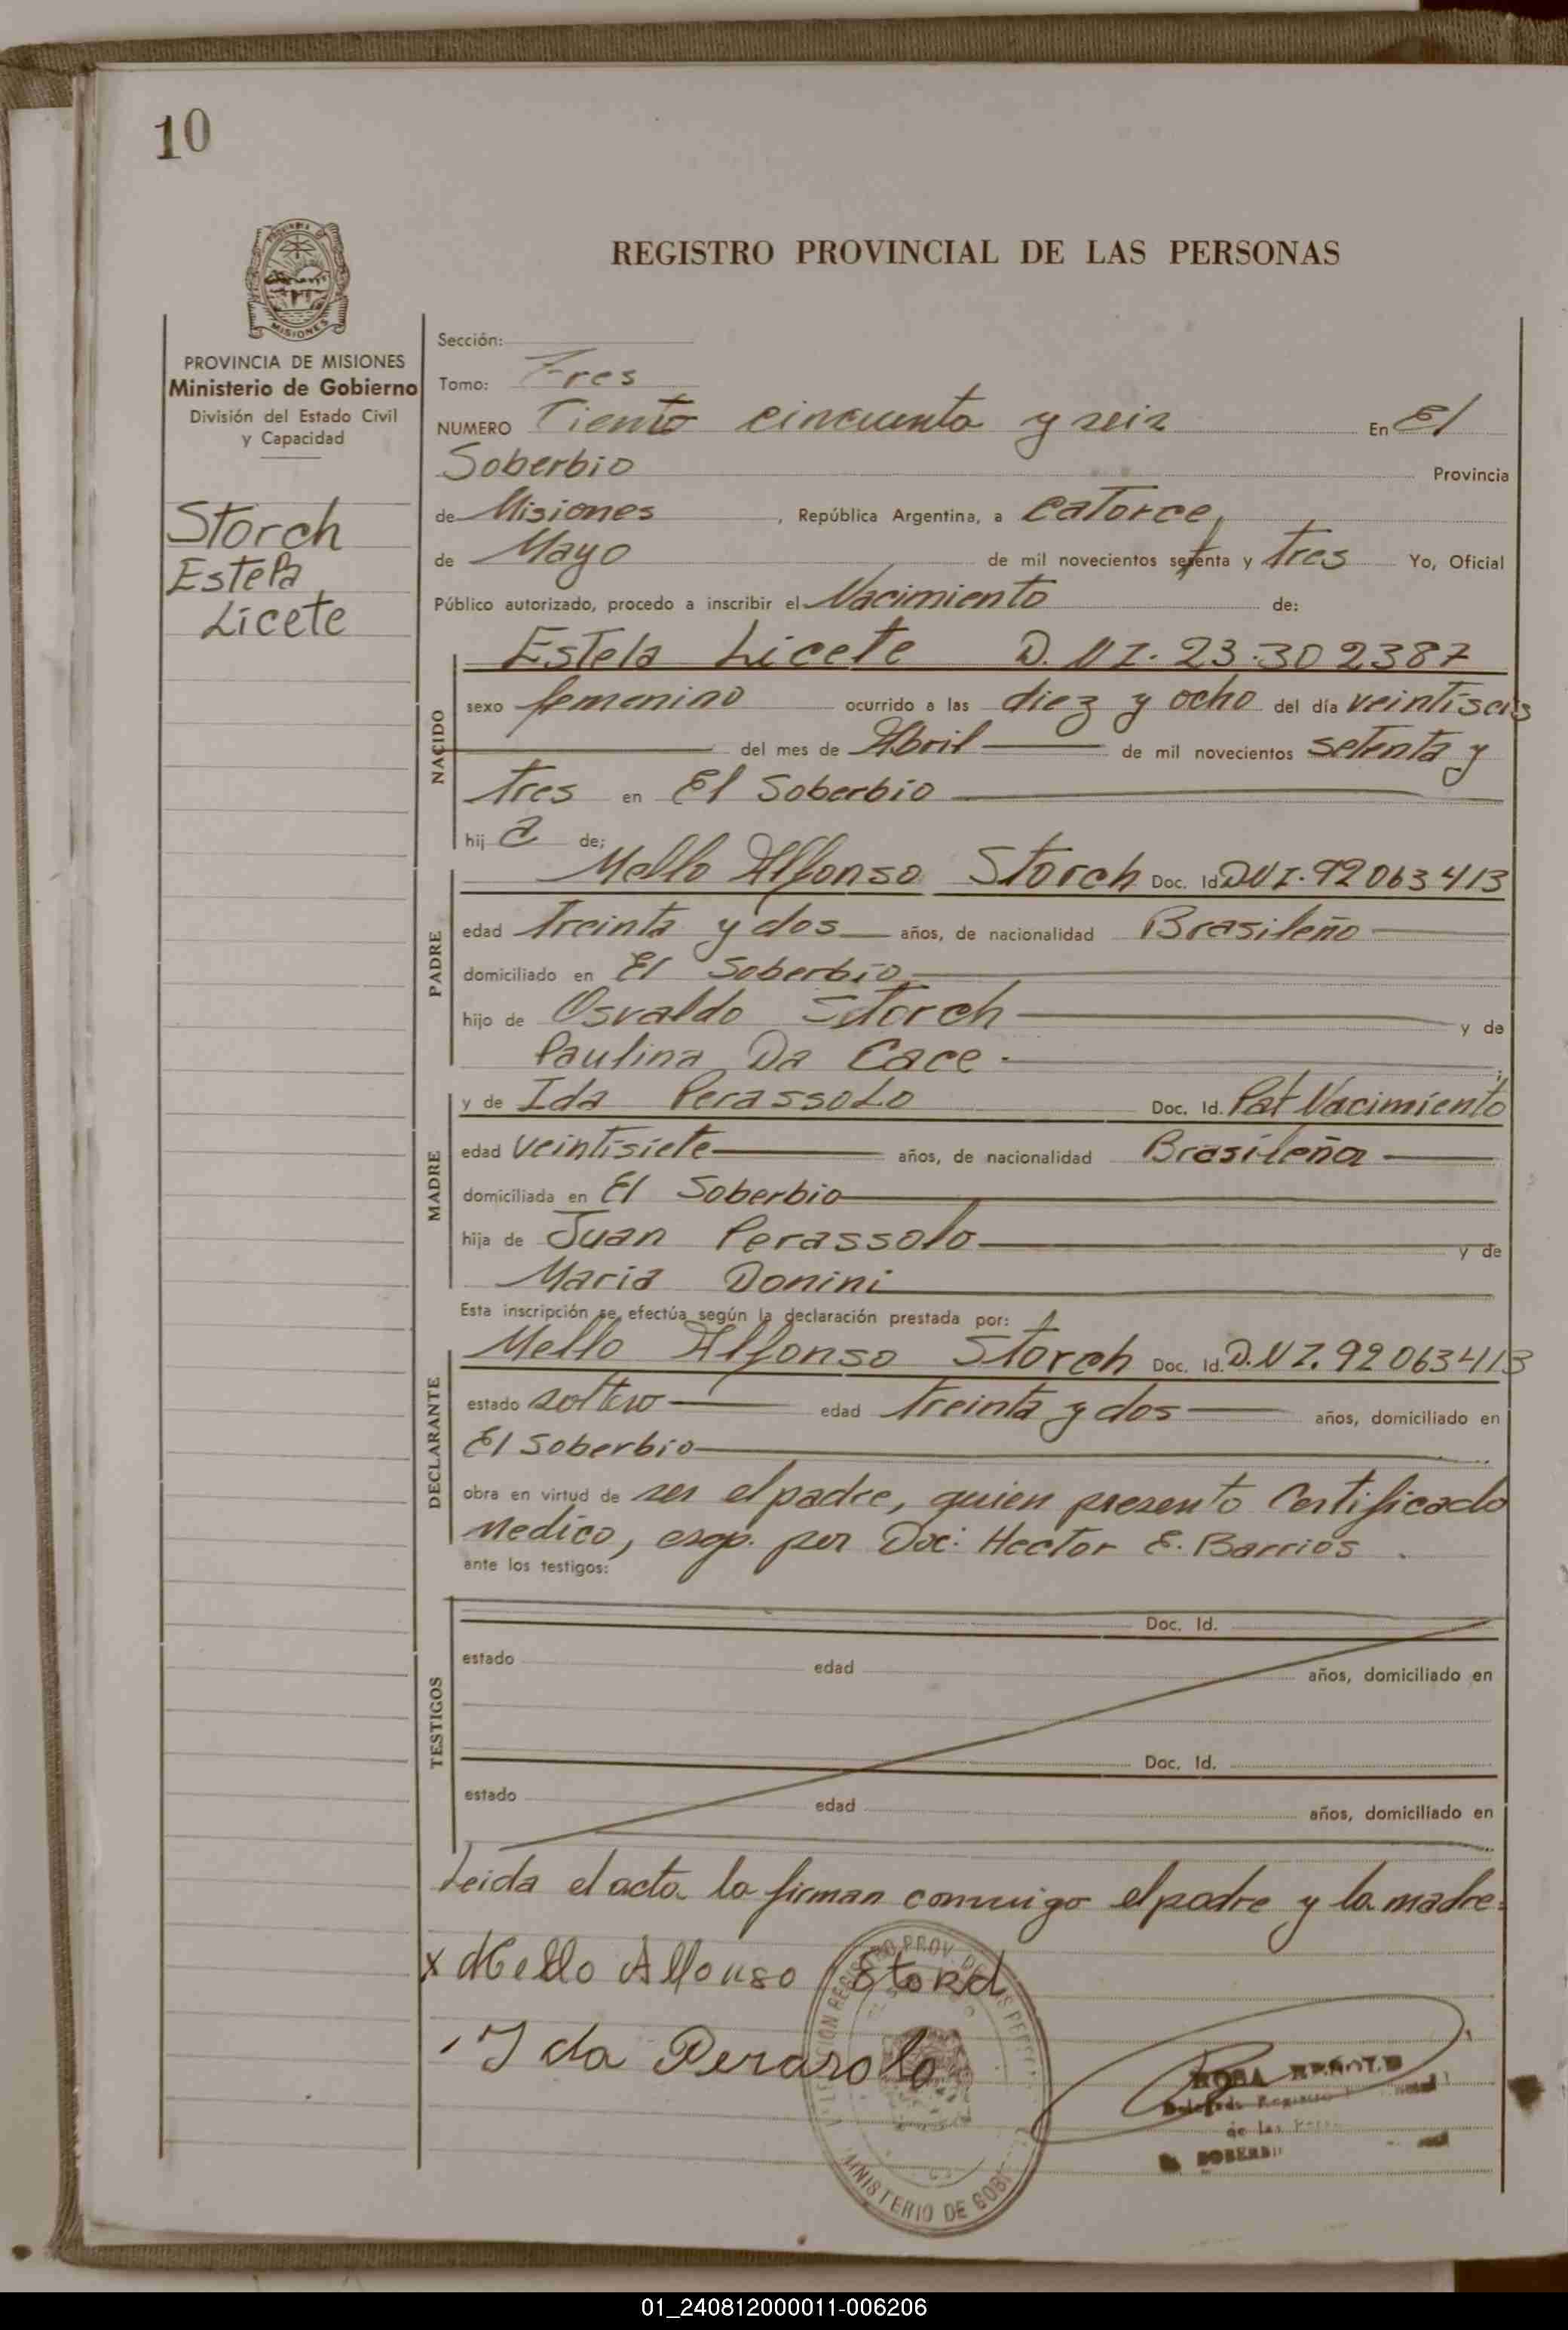 10
REGISTRO PROVINCIAL DE LAS PERSONAS
MISIONES
PROVINCIA DE MISIONES
Ministerio de Gobierno
División del Estado Civil
y Capacidad
Storch
Estela
Licete
Sección:
Tomo: Tres
NUMERO Ciento cincuenta y seis En El
Soberbio Provincia
de Misiones, República Argentina, a catorce,
de Mayo de mil novecientos setenta y tres Yo, Oficial
Público autorizado, procedo a inscribir el Nacimiento de:
NACIDO
Estela Licete D.NI. 23.302387
sexo femenino ocurrido a las diez y ocho del día veintiseis
del mes de Abril de mil novecientos setenta y
tres en El Soberbio
hij a de;
PADRE
Mello Alfonso Storch Doc. Id. DNI. 92063413
edad treinta y dos años, de nacionalidad Brasileño
domiciliado en El Soberbio
hijo de Osvaldo Storch y de
Paulina Da Cace.
MADRE
y de Ida Perassolo Doc. Id. Pat Nacimiento
edad veintisiete años, de nacionalidad Brasileña
domiciliada en El Soberbio
hija de Juan Perassolo y de
Maria Donini
Esta inscripción se efectúa según la declaración prestada por:
DECLARANTE
Mello Alfonso Storch Doc. Id. D.NI. 92063413
estado soltero edad treinta y dos años, domiciliado en
El Soberbio
obra en virtud de ser el padre, quien presento Certificado
Medico, exp. por Doc: Hector E. Barrios.
ante los testigos:
TESTIGOS
Doc. Id.
estado edad años, domiciliado en
Doc. Id.
estado edad años, domiciliado en
Leida el acta la firman conmigo el padre y la madre.
x Mello Alfonso Storch
Ida Perasolo
MINISTERIO DE GOBI
ROSA
de las
SOBERBI
01_240812000011-006206